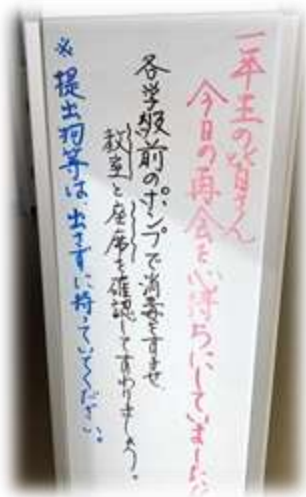 一年生の皆さん
今日の再会を心待ちにしていました
各学級前のポンプで消毒をすませ、
教室と座席を確認してすわりましょう。
※提出物等は、出さずに持っていてください。